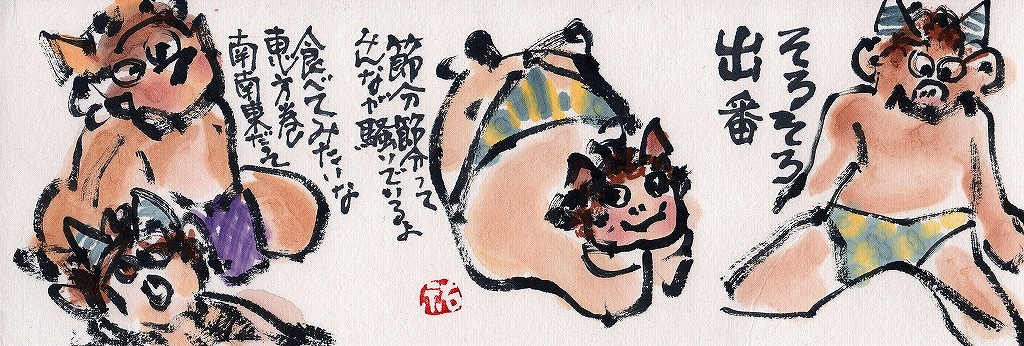 そろそろ
出番
節分節分って
みんなが騒いでいるよ
食べてみたいな
恵方巻
南南東だぞ